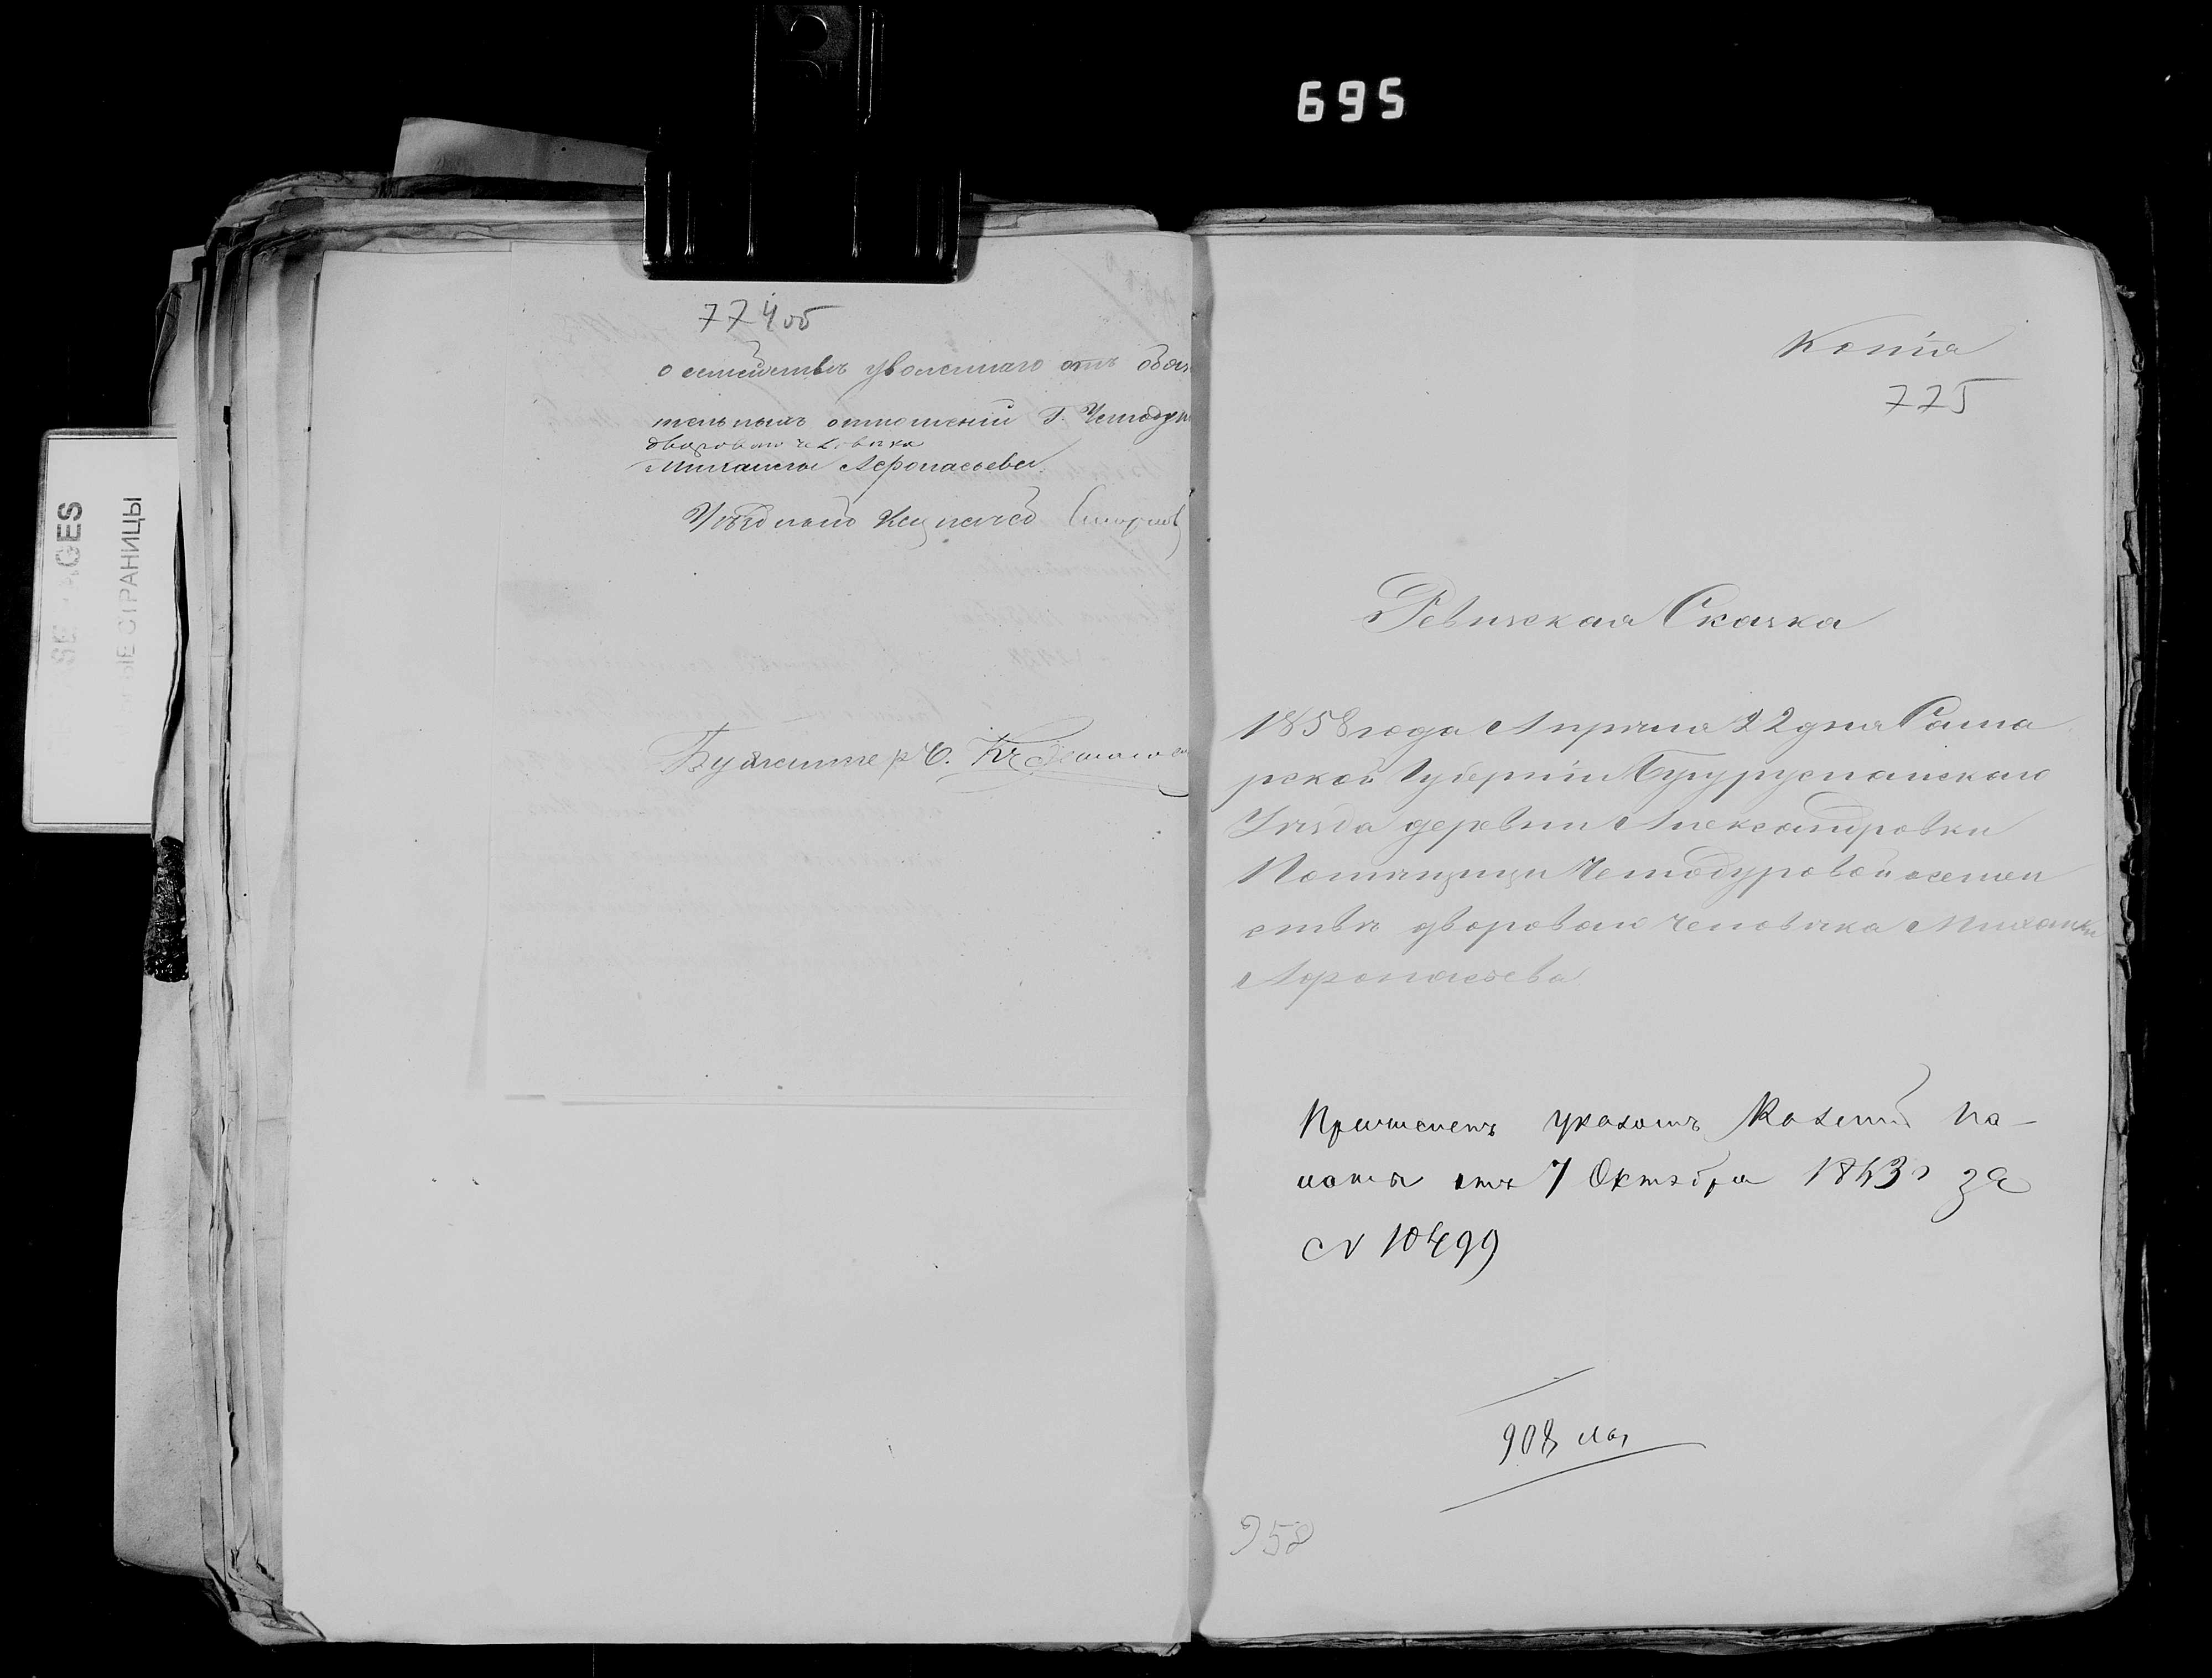 695
774об
о семействѣ уволеннаго отъ обяза
тельныхъ отношеній Г. Чемодур
двороваго человѣка
Михаилы Афонасьева.
Уѣздный Казначей
Бухгалтеръ
SE PAGES
НЫЕ СТРАНИЦЫ
Копія
775
Ревизская Сказка
1858 года Апрѣля 22 дня Сама
рской Губерніи Бугурусланскаго
Уѣзда деревни Александровки
Помѣщицы Чемодуровой о семей
ствѣ двороваго человѣка Михайлы
Афонасьева.
Причисленъ указомъ Казенной Па-
латы отъ 7 Октября 1863 г за
№ 10499
908
958